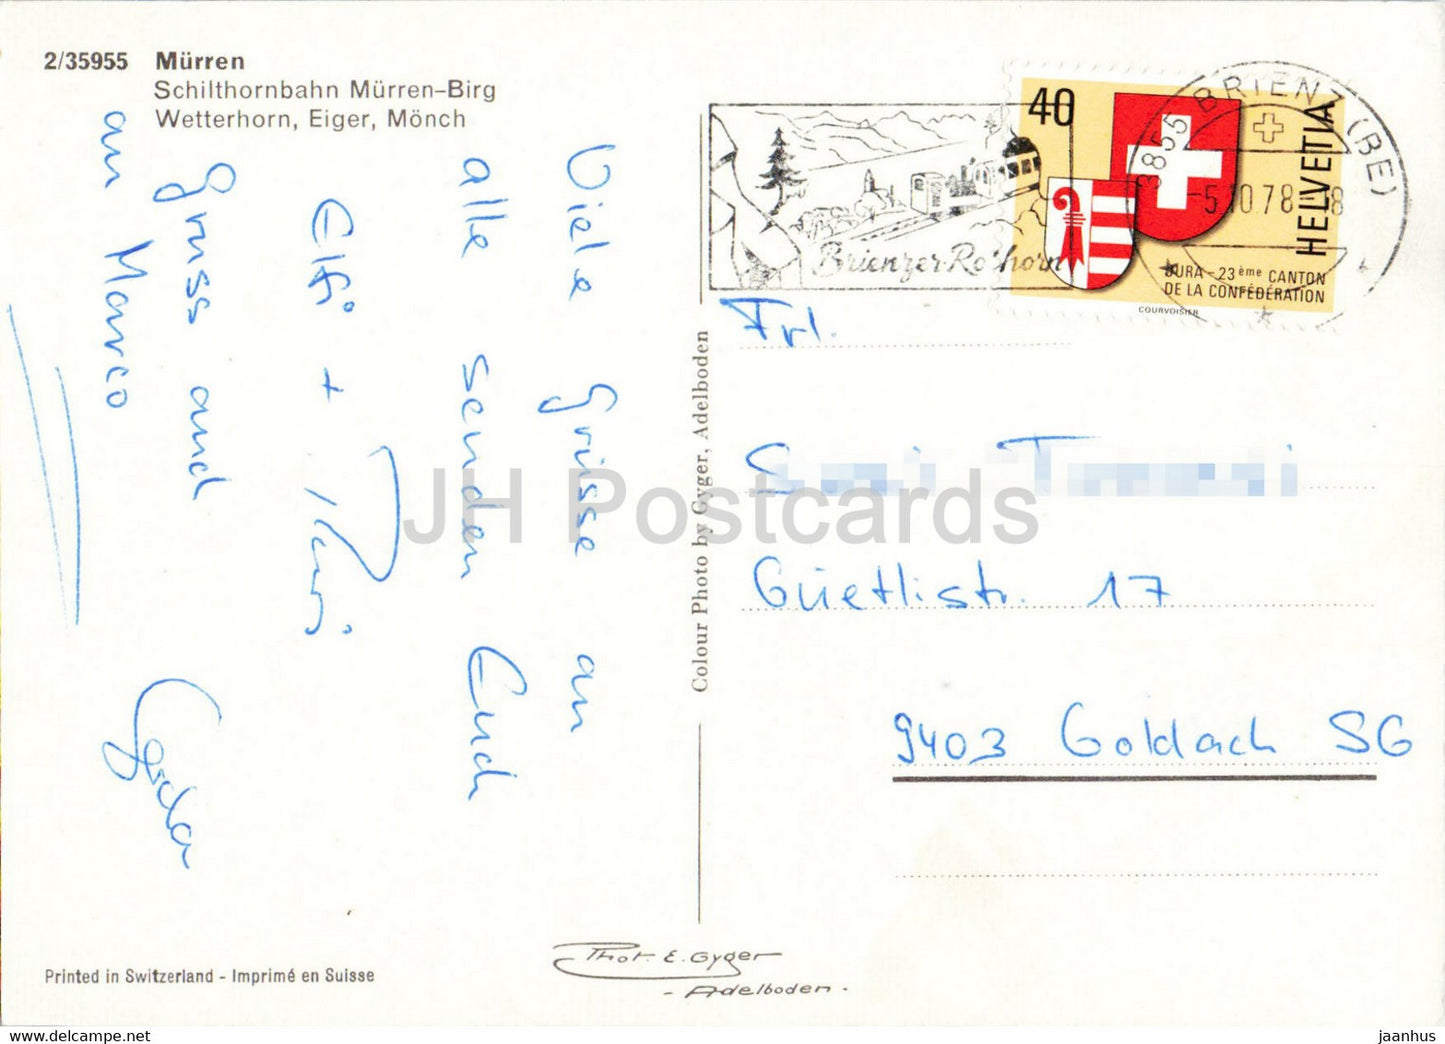 2/35955 Mürren
Schilthornbahn Mürren-Birg
Wetterhorn, Eiger, Mönch
Viele Grüsse an
alle senden Euch
Elfi +
Gruss and
an Marco
Gerda
Colour Photo by Gyger, Adelboden
Brienzer-Rothorn
3855 BRIENZ (BE)
-5.10.78
40
HELVETIA
JURA - 23ème CANTON
DE LA CONFÉDÉRATION
COURVOISIER
Frl.
Güetlistr. 17
9403 Goldach SG
Printed in Switzerland - Imprimé en Suisse
Phot. E. Gyger
- Adelboden -
JH Postcards
www.delcampe.net
jaanhus